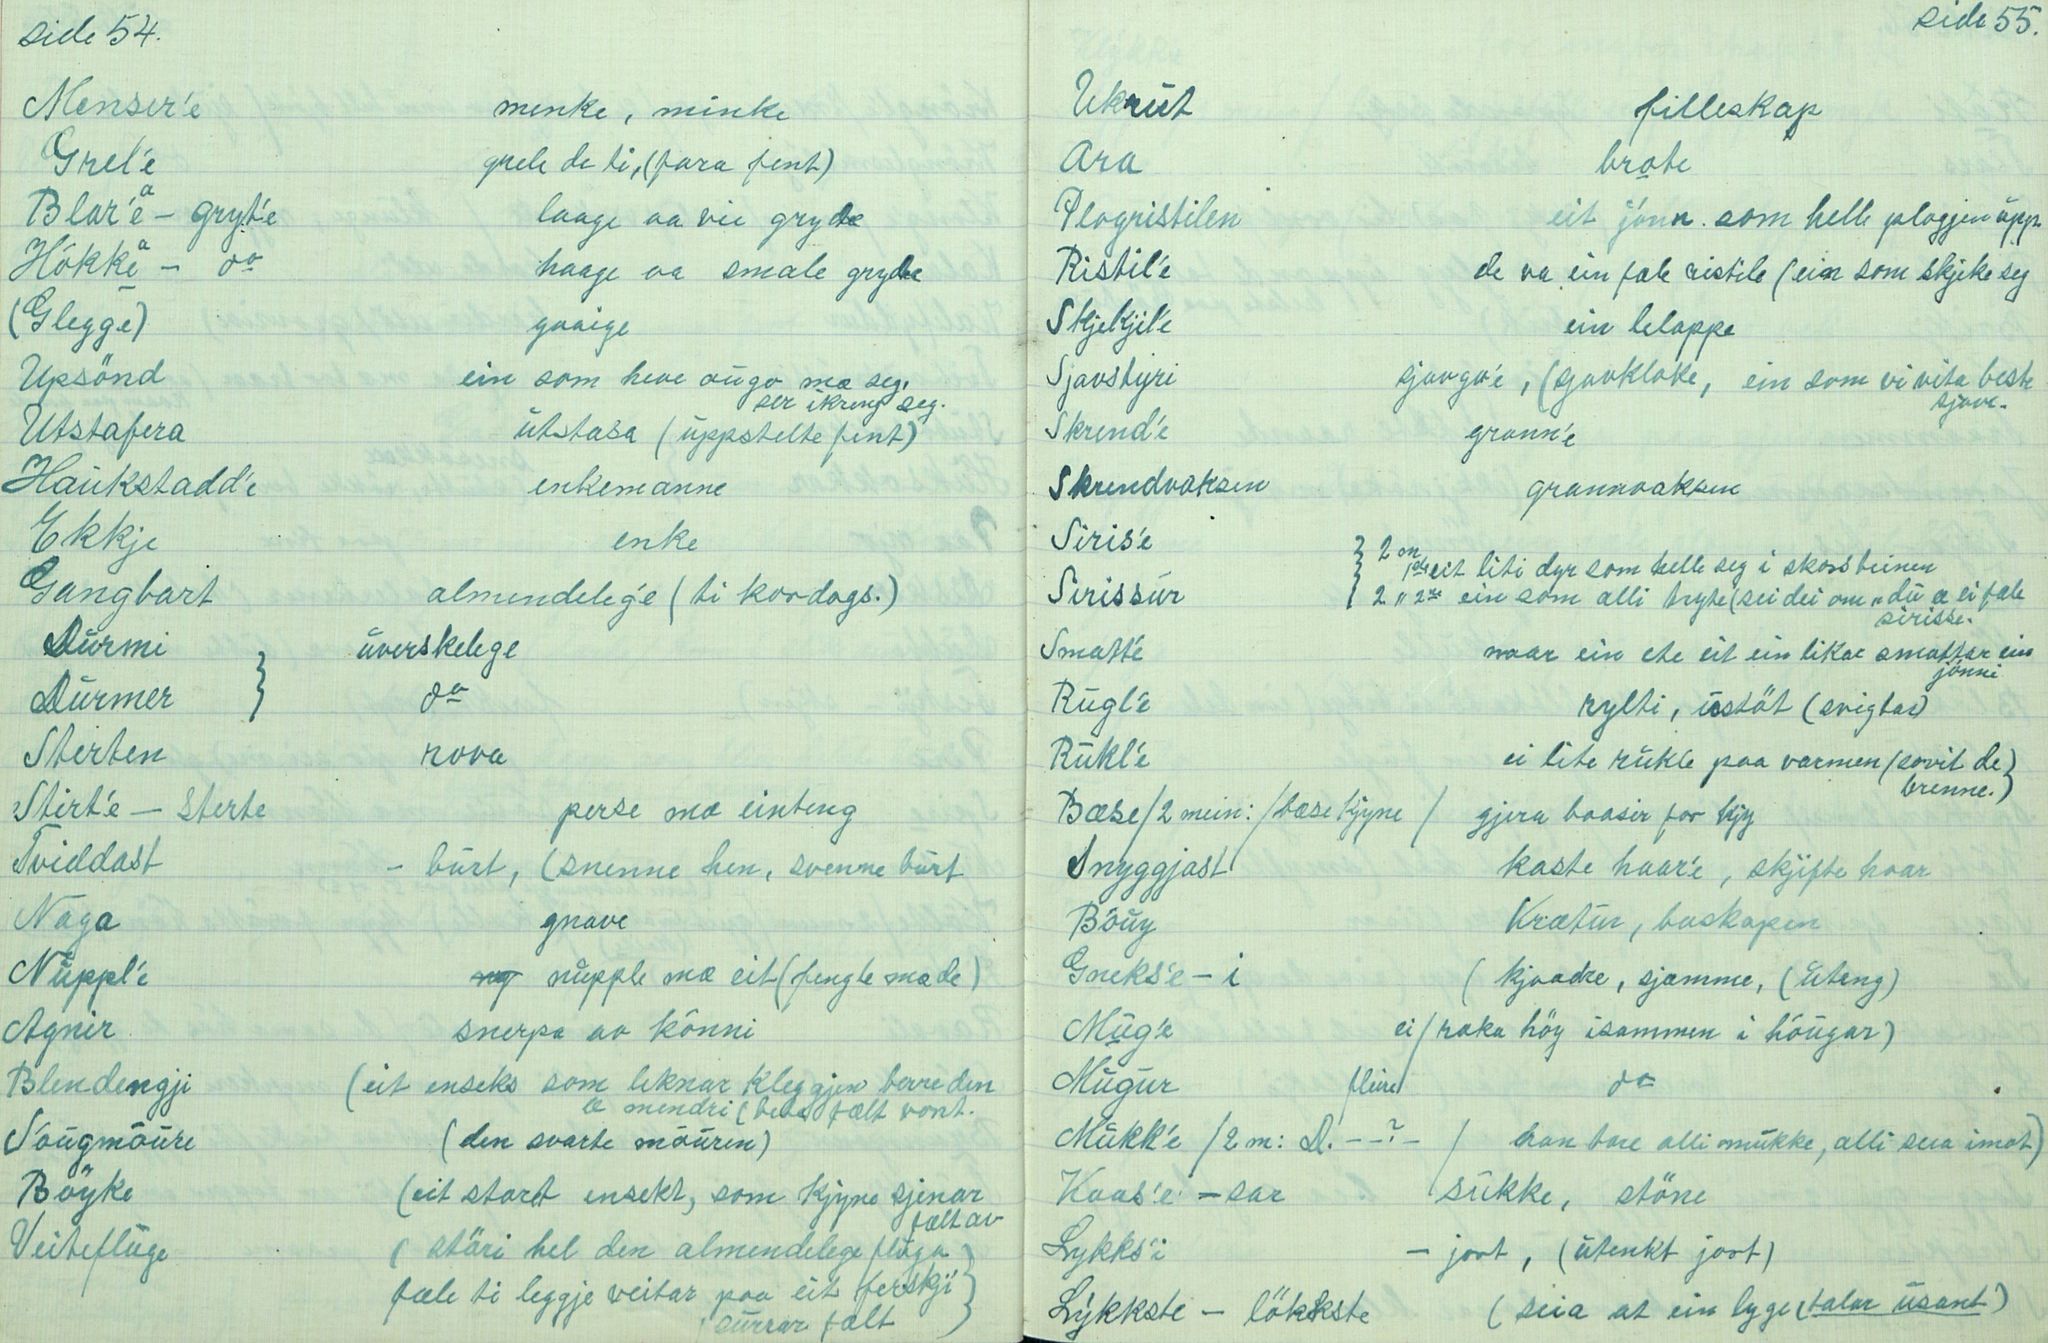 side 54.
Menser'e menke, minke
Grel'e grele de ti, (fara fent)
Blar'e å - gryt'e laage aa vie gryde
Hókke å - do haage aa smale gryde
(Glegge) graaige
Upsönd ein som heve oügo mæ seg,
ser ikreng seg.
Utstafera ütstasa (üppstelte fent)
Haükstadd'e enkemanne
Ekkje enke
Gangbart almendeleg'e (ti kvardags.)
Dürmi üverskelege
Dürmer } do
Sterten rova
Stirt'e - Sterte perse mæ einteng
Tviddast - bürt, (snenne hen, svenne bürt
Naga gnave
Nüppl'e nüpple mæ eit (fengle mæ de)
Agnir snerpa av könni
Blendengji (eit enseks som leknar kleggjen berre den
æ mendri (bete fælt vont.
Sóügmöüre (den svarte möüren)
Böyke (eit stort ensekt, som kjyne sjenar
fælt av
Veiteflüge (störi hel den almendelege flüga
fæle ti leggje veitar paa eit ferskji }
sürrar fælt
side 55.
Ukrüt filleskap
Ara brote
Plogristilen eit jónn. som helle plogjen üpp.
Ristil'e de va ein fæle ristile (ein som skjeke seg
Skjekjil'e ein lelappe
Sjavstyri sjavgo'e, (sjavkloke, ein som vi vita beste
sjave.
Skrend'e grann'e
Skrendvaksen grannvaksen
Siris'e } 2 on
1ste eit liti dyr som helle seg i skorsteinen
Sirissür 2 " 2re ein som alli tryte (sei dei om "dü æ ei fæle
sirisse.
Smatt'e naar ein ete eit ein likar smattar ein
jönni
Rügl'e rylti, üstöt (svigtar)
Rükl'e ei lite rükle paa varmen (sovit de
brenne.)
Bæse /2 mein: /bæse kjyne / gjera baasir for kjy
Snyggjast kaste haar'e, skjifte haar
Böüy Krætür, buskapen
Gneks'e - i (kjaadre, sjæmme, (üteng)
Müg'e ei / raka höy isammen i höügar)
Mügür fleire do
Mükk'e /2 m: D. --?- / han bare alli mükke, alli seia imot)
Kaas'e - sar sükke, stöne
Lykks'i - jort, (ütenkt jort)
Lykkste - lökkste (seia at ein lyge (talar üsant)